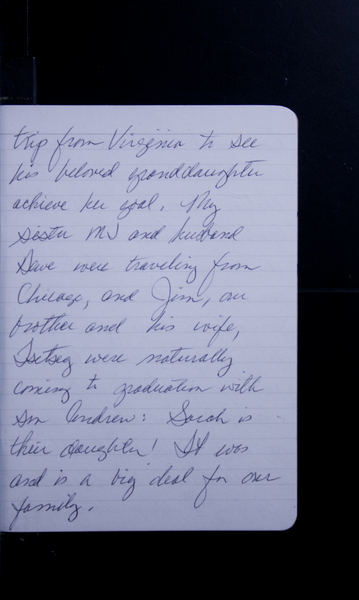 trip from Virginia to see
his beloved granddaughter
achieve her goal. My
sister MJ and husband
Dave were traveling from
Chicago, and Jim, our
brother and his wife,
Tsetseg were naturally
coming to graduation with
son Andrew: Sarah is
their daughter! It was
and is a big deal for our
family.